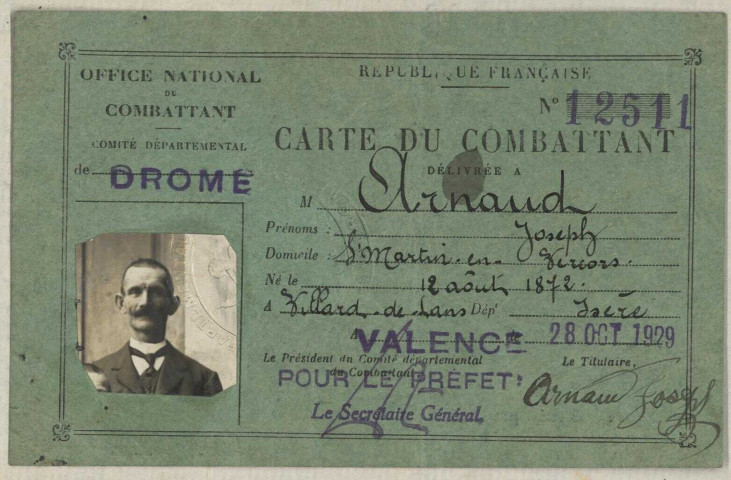 OFFICE NATIONAL
DU
COMBATTANT
COMITÉ DÉPARTEMENTAL
de DROME
RÉPUBLIQUE FRANÇAISE
N° 12511
CARTE DU COMBATTANT
DÉLIVRÉE A
M Arnaud
Prénoms : Joseph
Domicile : St Martin-en-Vercors.
Né le 12 août 1872.
A Villard-de-Lans Dépt Isère
A VALENCE 28 OCT 1929
Le Président du Comité départemental
du Combattant,
Le Titulaire,
POUR LE PRÉFET:
Le Secrétaire Général,
Arnaud Joseph